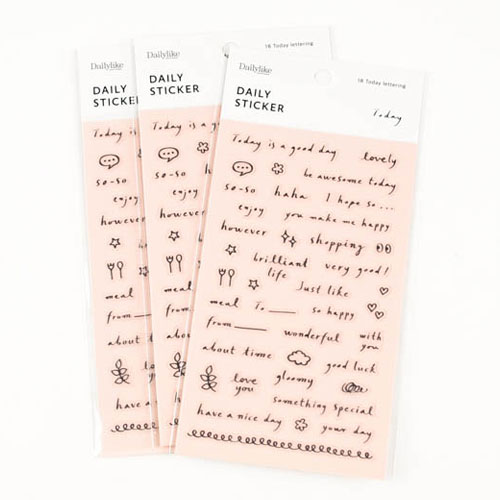 Dailylike
DAILY
STICKER
Today is
so-so
enjoy
however
meal
from
about
have
Dailylike
18 Today lettering
DAILY
STICKER
Today is a g
so-so
enjoy
however
Dailylike
18 Today lettering
DAILY
STICKER
Today
Today is a good day lovely
be awesome today
so-so haha I hope so...
enjoy you make me happy
however shopping
brilliant life very good!
Just like
meal To____ so happy
from____ wonderful with you
about time good luck
love you gloomy
something special
have a nice day your day